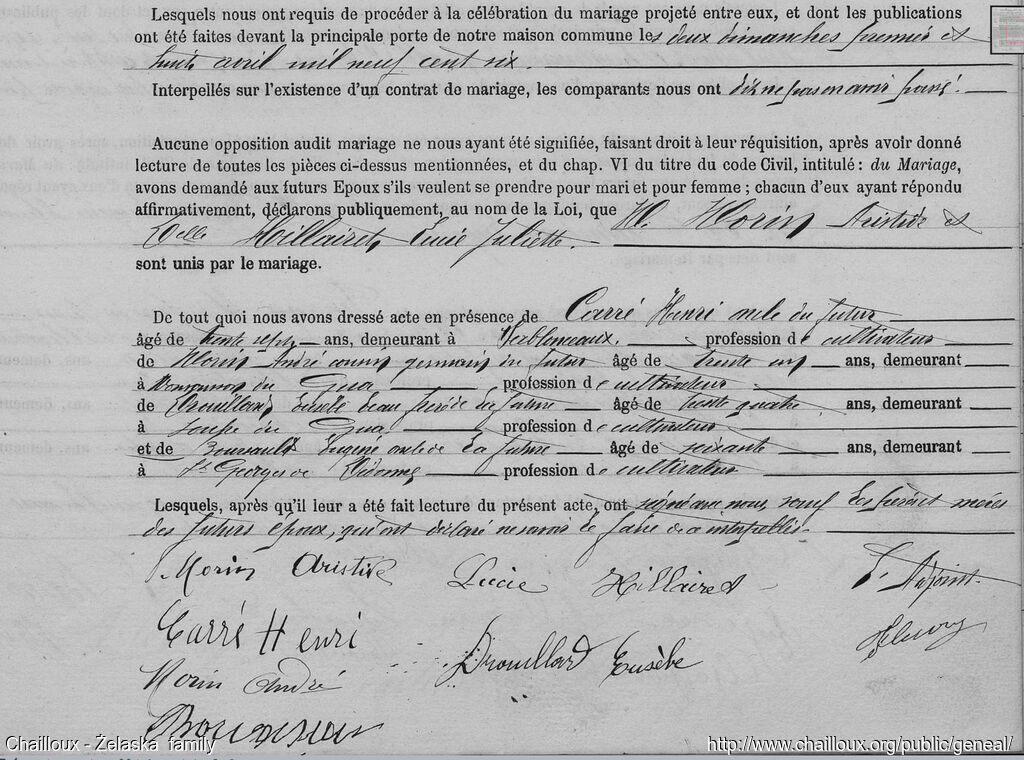 Lesquels nous ont requis de procéder à la célébration du mariage projeté entre eux, et dont les publications
ont été faites devant la principale porte de notre maison commune les deux dimanches premier et
huit avril mil neuf cent six.
Interpellés sur l'existence d'un contrat de mariage, les comparants nous ont dit ne pas en avoir passé.
Aucune opposition audit mariage ne nous ayant été signifiée, faisant droit à leur réquisition, après avoir donné
lecture de toutes les pièces ci-dessus mentionnées, et du chap. VI du titre du code Civil, intitulé : du Mariage,
avons demandé aux futurs Epoux s'ils veulent se prendre pour mari et pour femme ; chacun d'eux ayant répondu
affirmativement, déclarons publiquement, au nom de la Loi, que M. Morin Aristide et
Delle Hillairet Lucie Juliette.
sont unis par le mariage.
De tout quoi nous avons dressé acte en présence de Carré Henri oncle du futur
âgé de trente sept ans, demeurant à profession de cultivateur
de Morin André cousin germain du futur âgé de trente ans, demeurant
à du Gua profession de cultivateur
de Drouillard Eusèbe beau frère de la future âgé de trente quatre ans, demeurant
à du Gua profession de cultivateur
et de Eugène oncle de la future âgé de soixante ans, demeurant
à St Georges de profession de cultivateur
Lesquels, après qu'il leur a été fait lecture du présent acte, ont signé avec nous, sauf les mères
des futurs époux, qui ont déclaré ne savoir le faire de ce interpellés.
Morin Aristide Lucie Hillairet L'Adjoint
Carré Henri
Drouillard Eusèbe
Morin André
Chailloux - Żelaska family
http://www.chailloux.org/public/geneal/